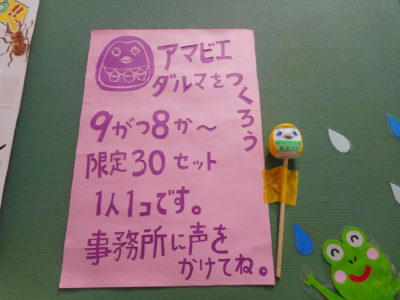 アマビエ
ダルマをつくろう
9がつ8か～
限定30セット
1人1コです。
事務所に声を
かけてね。